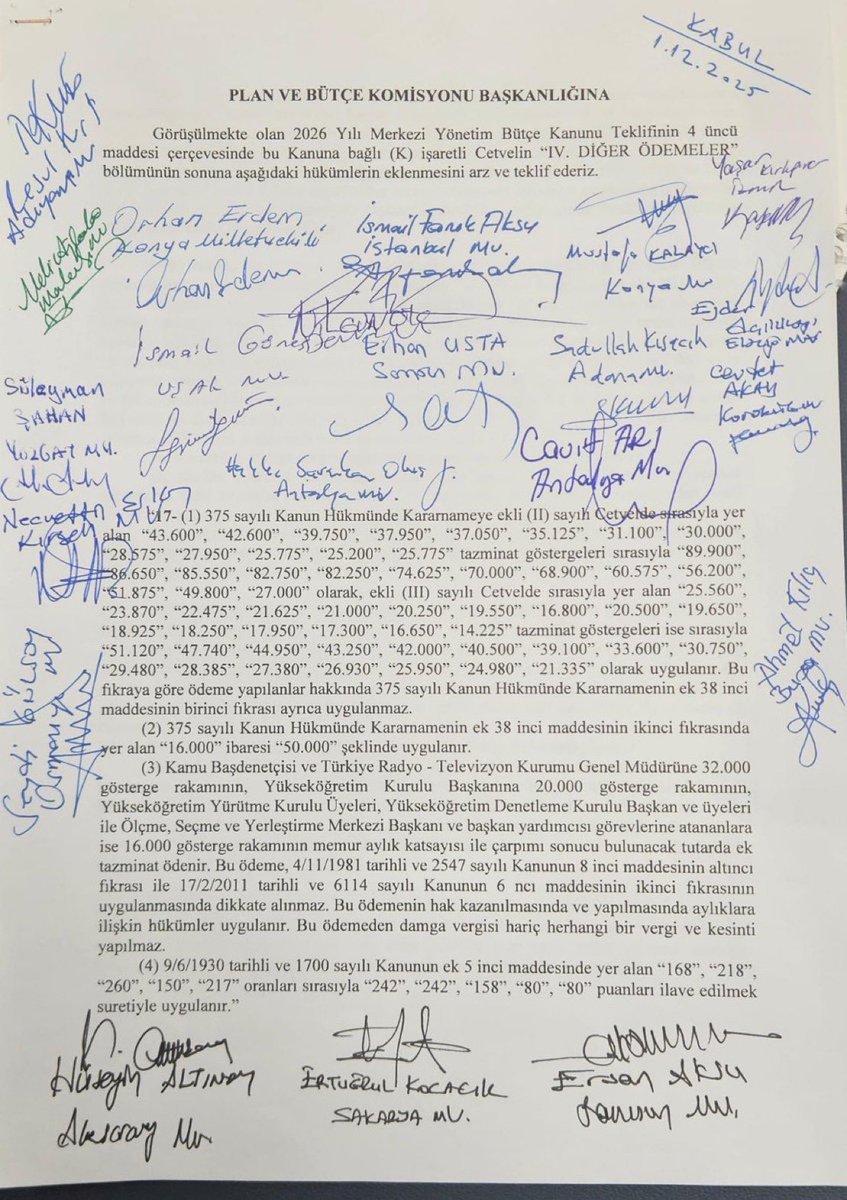 KABUL
1.12.2025
PLAN VE BÜTÇE KOMİSYONU BAŞKANLIĞINA
Görüşülmekte olan 2026 Yılı Merkezi Yönetim Bütçe Kanunu Teklifinin 4 üncü
maddesi çerçevesinde bu Kanuna bağlı (K) işaretli Cetvelin “IV. DİĞER ÖDEMELER”
bölümünün sonuna aşağıdaki hükümlerin eklenmesini arz ve teklif ederiz.
Orhan Erdem
Konya Milletvekili
Orhan Erdem
İsmail Faruk Aksu
İstanbul Mv.
Mustafa KALAYCI
Konya Mv
Yaşar Kırkpınar
İzmir
İsmail Güneş
UŞAK MV.
Erhan USTA
Samsun MV.
Sadullah Kısacık
Adana Mv.
Ejder
Açıkkapı
Elazığ Mv
Cevdet
AKAY
Karabük
Süleyman
ŞAHAN
YOZGAT MV.
Cavit ARI
Antalya Mv
Hakkı Saruhan Oluç
Antalya Mv.
Necmettin Erkan
Kırşehir MV
“17- (1) 375 sayılı Kanun Hükmünde Kararnameye ekli (II) sayılı Cetvelde sırasıyla yer
alan “43.600”, “42.600”, “39.750”, “37.950”, “37.050”, “35.125”, “31.100”, “30.000”,
“28.575”, “27.950”, “25.775”, “25.200”, “25.775” tazminat göstergeleri sırasıyla “89.900”,
“86.650”, “85.550”, “82.750”, “82.250”, “74.625”, “70.000”, “68.900”, “60.575”, “56.200”,
“51.875”, “49.800”, “27.000” olarak, ekli (III) sayılı Cetvelde sırasıyla yer alan “25.560”,
“23.870”, “22.475”, “21.625”, “21.000”, “20.250”, “19.550”, “16.800”, “20.500”, “19.650”,
“18.925”, “18.250”, “17.950”, “17.300”, “16.650”, “14.225” tazminat göstergeleri ise sırasıyla
“51.120”, “47.740”, “44.950”, “43.250”, “42.000”, “40.500”, “39.100”, “33.600”, “30.750”,
“29.480”, “28.385”, “27.380”, “26.930”, “25.950”, “24.980”, “21.335” olarak uygulanır. Bu
fıkraya göre ödeme yapılanlar hakkında 375 sayılı Kanun Hükmünde Kararnamenin ek 38 inci
maddesinin birinci fıkrası ayrıca uygulanmaz.
(2) 375 sayılı Kanun Hükmünde Kararnamenin ek 38 inci maddesinin ikinci fıkrasında
yer alan “16.000” ibaresi “50.000” şeklinde uygulanır.
(3) Kamu Başdenetçisi ve Türkiye Radyo - Televizyon Kurumu Genel Müdürüne 32.000
gösterge rakamının, Yükseköğretim Kurulu Başkanına 20.000 gösterge rakamının,
Yükseköğretim Yürütme Kurulu Üyeleri, Yükseköğretim Denetleme Kurulu Başkan ve üyeleri
ile Ölçme, Seçme ve Yerleştirme Merkezi Başkanı ve başkan yardımcısı görevlerine atananlara
ise 16.000 gösterge rakamının memur aylık katsayısı ile çarpımı sonucu bulunacak tutarda ek
tazminat ödenir. Bu ödeme, 4/11/1981 tarihli ve 2547 sayılı Kanunun 8 inci maddesinin altıncı
fıkrası ile 17/2/2011 tarihli ve 6114 sayılı Kanunun 6 ncı maddesinin ikinci fıkrasının
uygulanmasında dikkate alınmaz. Bu ödemenin hak kazanılmasında ve yapılmasında aylıklara
ilişkin hükümler uygulanır. Bu ödemeden damga vergisi hariç herhangi bir vergi ve kesinti
yapılmaz.
(4) 9/6/1930 tarihli ve 1700 sayılı Kanunun ek 5 inci maddesinde yer alan “168”, “218”,
“260”, “150”, “217” oranları sırasıyla “242”, “242”, “158”, “80”, “80” puanları ilave edilmek
suretiyle uygulanır.”
Ahmet Kılıç
Bursa MV.
Hüseyin ALTINSOY
Aksaray Mv.
ERTUĞRUL KOCACIK
SAKARYA MV.
Ersan AKSU
Samsun Mv.